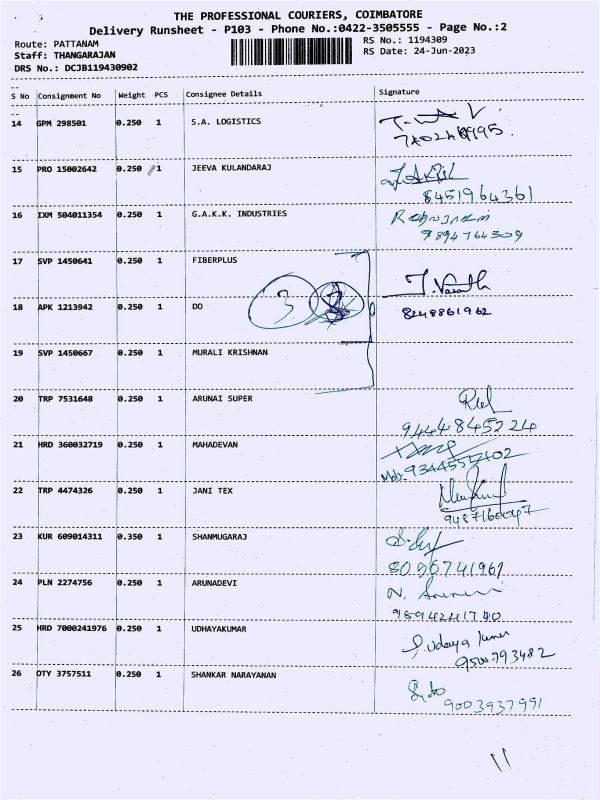 THE PROFESSIONAL COURIERS, COIMBATORE
Delivery Runsheet - P103 - Phone No.:0422-3505555 - Page No.:2
Route: PATTANAM
RS No.: 1194309
Staff: THANGARAJAN
RS Date: 24-Jun-2023
DRS No.: DCJB119430902
S No Consignment No Weight PCS Consignee Details Signature
14 GPM 298501 0.250 1 S.A. LOGISTICS
15 PRO 15002642 0.250 1 JEEVA KULANDARAJ
8451964361
16 IXM 504011354 0.250 1 G.A.K.K. INDUSTRIES
9894764309
17 SVP 1450641 0.250 1 FIBERPLUS
18 APK 1213942 0.250 1 DO 3 3 J. Vasanth
8248861962
19 SVP 1450667 0.250 1 MURALI KRISHNAN
20 TRP 7531648 0.250 1 ARUNAI SUPER
9444845224
21 HRD 360032719 0.250 1 MAHADEVAN
22 TRP 4474326 0.250 1 JANI TEX
9487160047
23 KUR 609014311 0.350 1 SHANMUGARAJ
8056741961
24 PLN 2274756 0.250 1 ARUNADEVI
9894241740
25 HRD 7000241976 0.250 1 UDHAYAKUMAR Udaya kumar
9500793482
26 OTY 3757511 0.250 1 SHANKAR NARAYANAN
9003937991
11